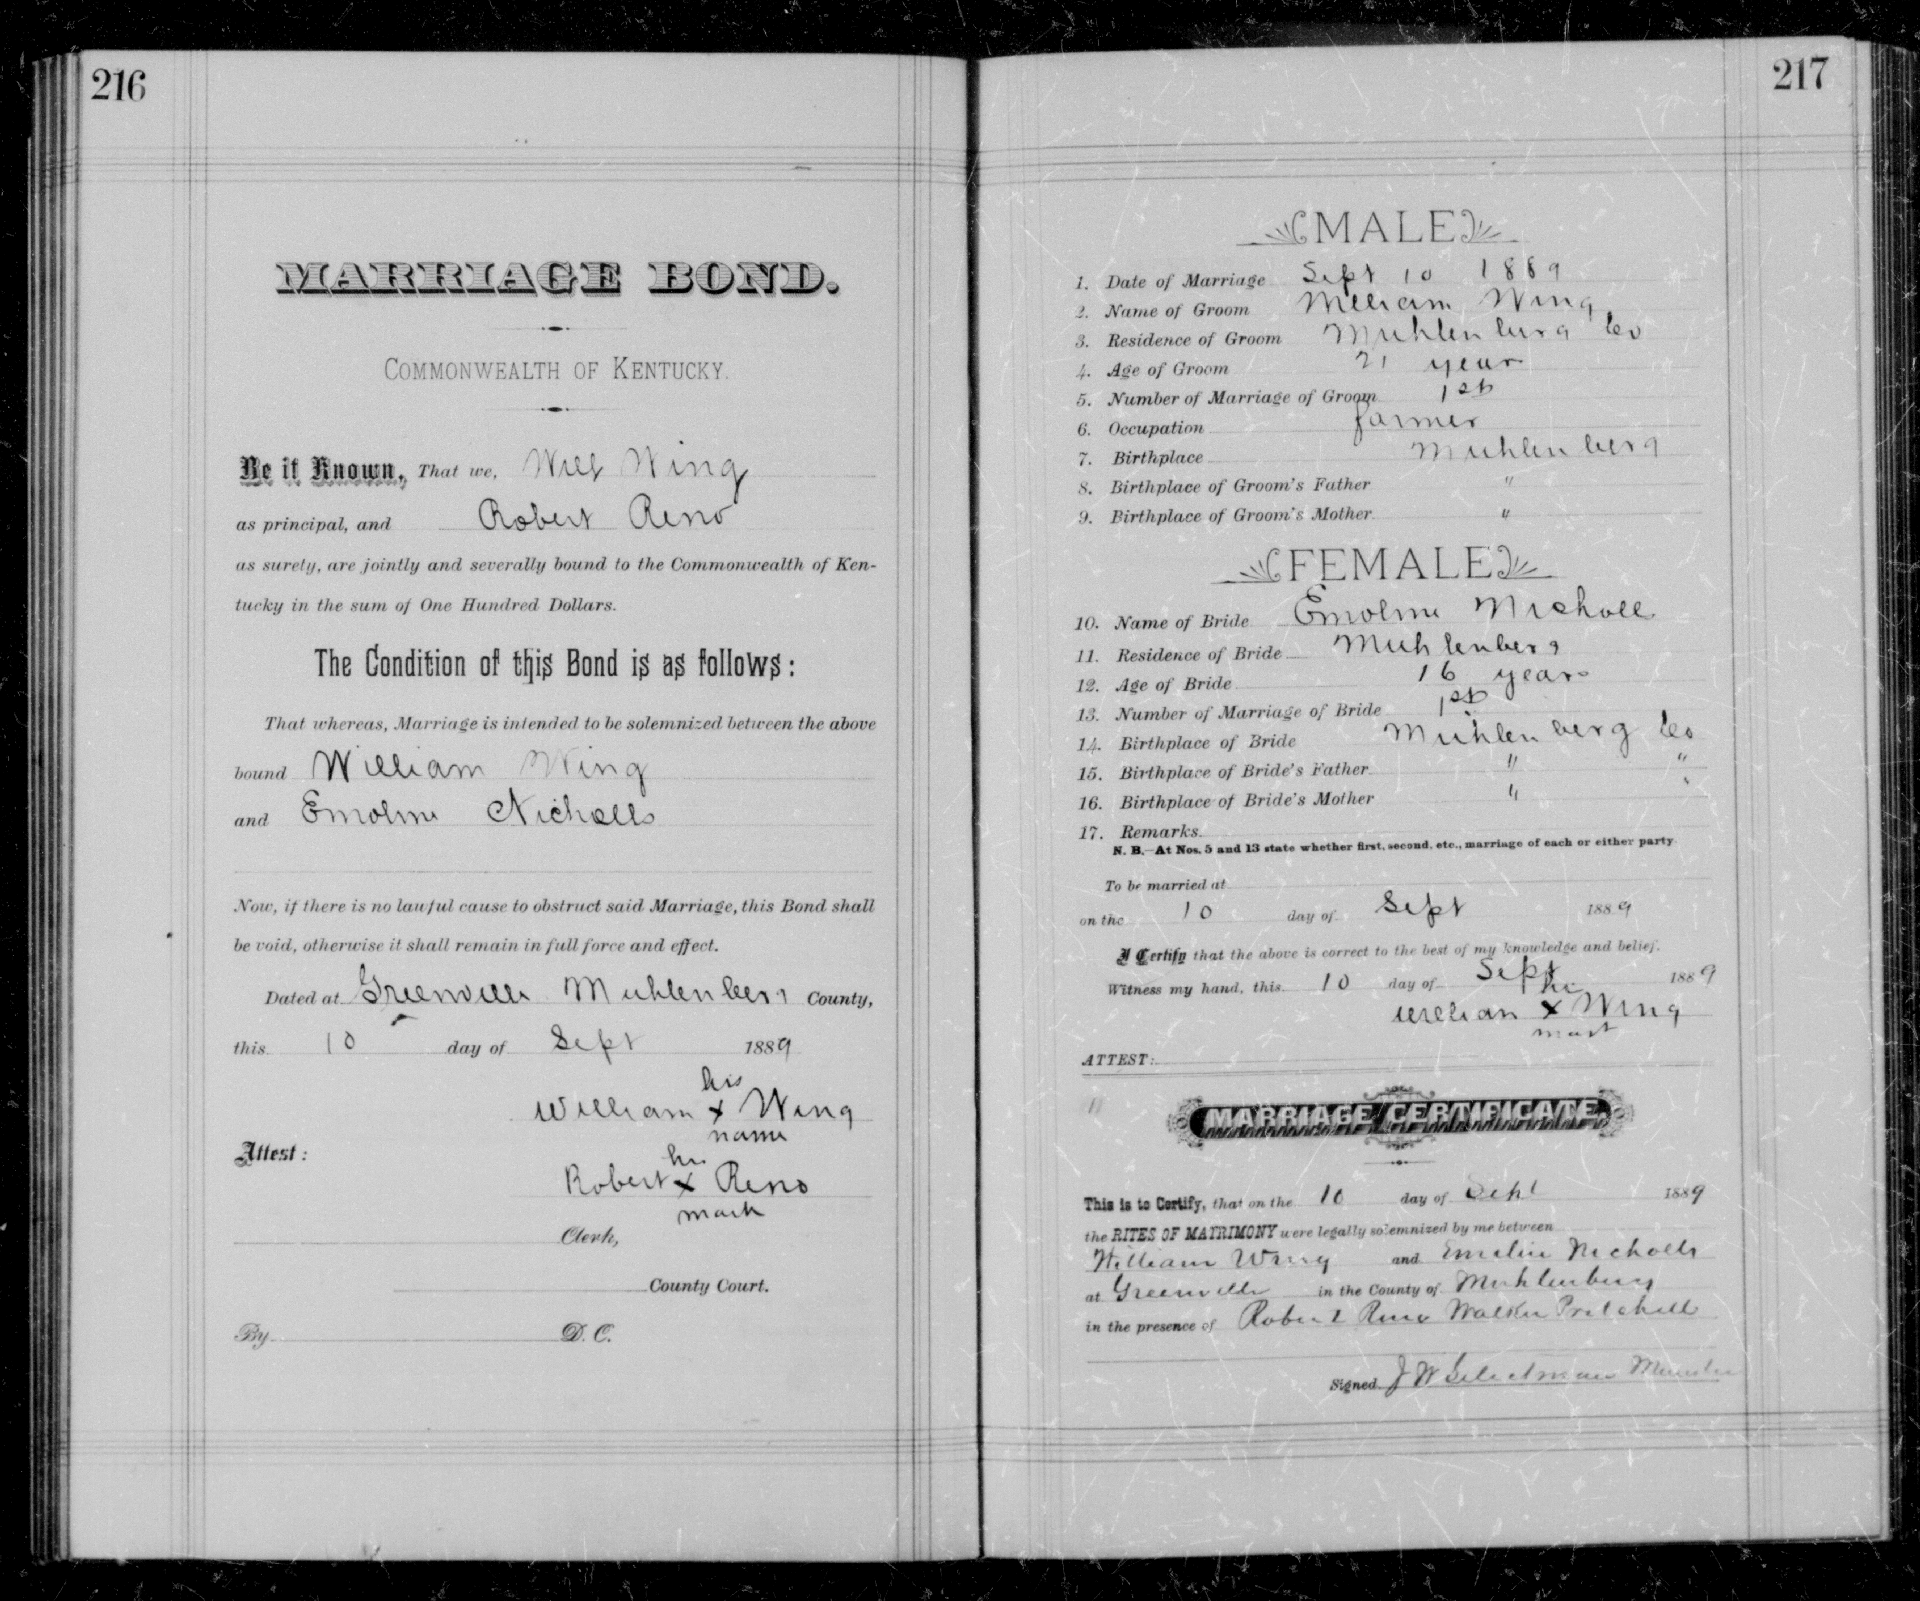 216
MARRIAGE BOND.
COMMONWEALTH OF KENTUCKY.
Be it Known, That we, Will Wing
as principal, and Robert Reno
as surety, are jointly and severally bound to the Commonwealth of Ken-
tucky in the sum of One Hundred Dollars.
The Condition of this Bond is as follows:
That whereas, Marriage is intended to be solemnized between the above
bound William Wing
and Emoline Nicholls
Now, if there is no lawful cause to obstruct said Marriage, this Bond shall
be void, otherwise it shall remain in full force and effect.
Dated at Greenville Muhlenberg County,
this 10 day of Sept 1889
his
William x Wing
name
Attest:
his
Robert x Reno
mark
Clerk,
County Court.
By D. C.
217
MALE
1. Date of Marriage Sept 10 1889
2. Name of Groom William Wing
3. Residence of Groom Muhlenburg Co
4. Age of Groom 21 year
5. Number of Marriage of Groom 1st
6. Occupation farmer
7. Birthplace Muhlenberg
8. Birthplace of Groom's Father "
9. Birthplace of Groom's Mother "
FEMALE
10. Name of Bride Emoline Nicholl
11. Residence of Bride Muhlenberg
12. Age of Bride 16 years
13. Number of Marriage of Bride 1st
14. Birthplace of Bride Muhlenberg Co
15. Birthplace of Bride's Father " "
16. Birthplace of Bride's Mother " "
17. Remarks.
N. B.—At Nos. 5 and 13 state whether first, second, etc., marriage of each or either party
To be married at
on the 10 day of Sept 1889
I Certify that the above is correct to the best of my knowledge and belief.
Witness my hand, this 10 day of Sept 1889
his
William x Wing
mark
ATTEST:
MARRIAGE CERTIFICATE.
This is to Certify, that on the 10 day of Sept 1889
the RITES OF MATRIMONY were legally solemnized by me between
William Wing and Emilin Nicholls
at Greenville in the County of Muhlenburg
in the presence of Robert Reno Walker Pritchell
Signed J W Selectman Minister